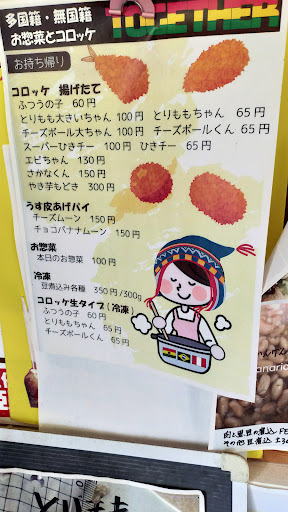 多国籍・無国籍
お惣菜とコロッケ
TOGETHER
お持ち帰り
コロッケ 揚げたて
ふつうの子 60円
とりもも大きいちゃん 100円 とりももちゃん 65円
チーズボール大ちゃん 100円 チーズボールくん 65円
スーパーひきチー 100円 ひきチー 65円
エビちゃん 130円
さかなくん 150円
やき芋もどき 300円
うす皮あげパイ
チーズムーン 150円
チョコバナナムーン 150円
お惣菜
本日のお惣菜 100円
冷凍
豆煮込み各種 350円/300g
コロッケ生タイプ(冷凍)
ふつうの子 60円
とりももちゃん 65円
チーズボールくん 65円